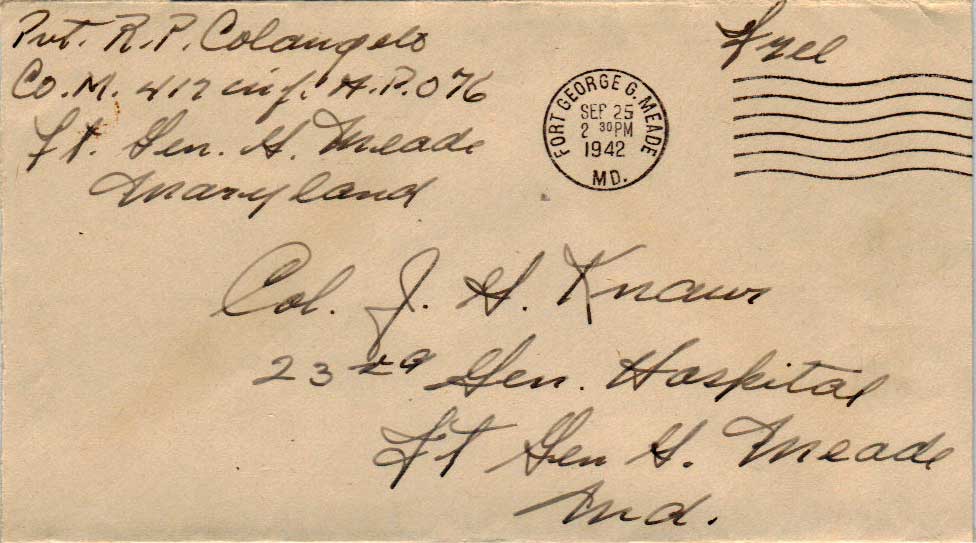 Pvt. R.P. Colangelo
Co. M. 417 inf. A.P.O 76
Ft. Gen. G. Meade
Maryland
Free
FORT GEORGE G. MEADE
SEP 25
2 30 PM
1942
MD.
Col. J. H.
23rd Gen. Hospital
Ft Gen G. Meade
Md.